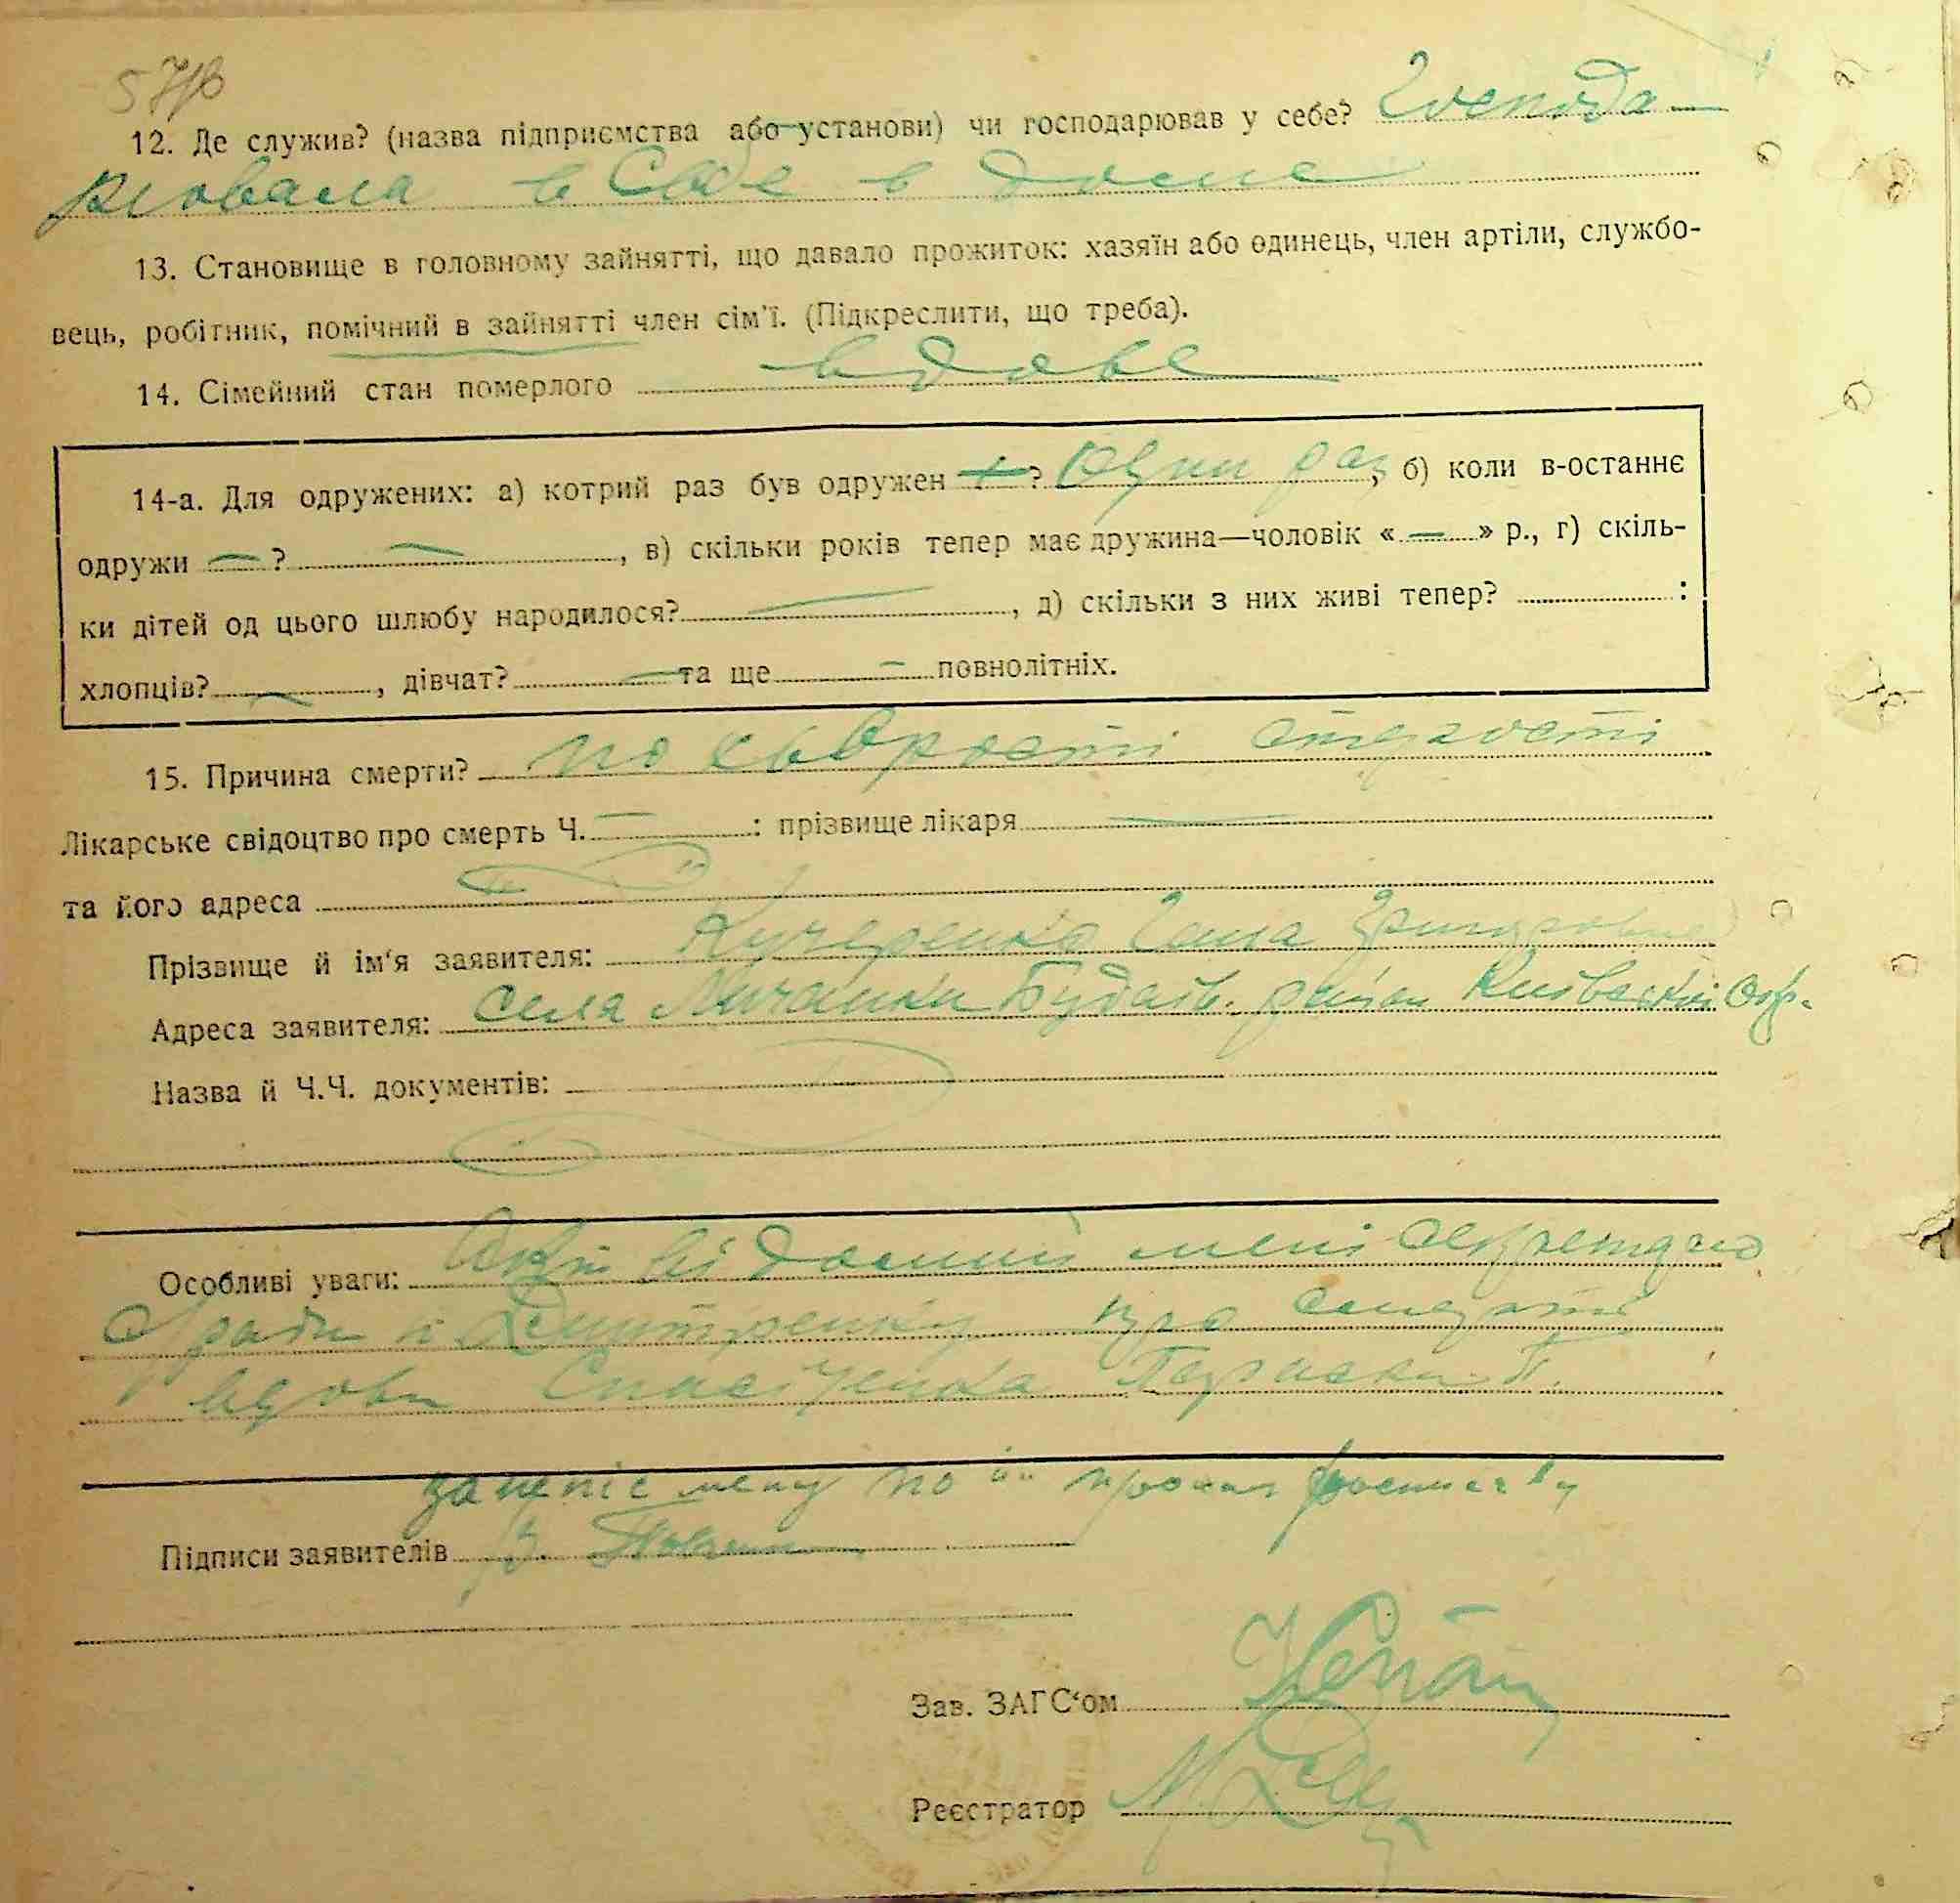 12. Де служив? (назва підприємства або установи) чи господарював у себе? Господа—
рювала в себе в дома
13. Становище в головному зайнятті, що давало прожиток: хазяїн або одинець, член артіли, службо-
вець, робітник, помічний в зайнятті член сім'ї. (Підкреслити, що треба).
14. Сімейний стан померлого вдова
14-а. Для одружених: а) котрий раз був одружен ? один раз, б) коли в-останнє
одружи — ? —, в) скільки років тепер має дружина—чоловік « — » р., г) скіль-
ки дітей од цього шлюбу народилося? —, д) скільки з них живі тепер? :
хлопців? —, дівчат? — та ще — повнолітніх.
15. Причина смерти? по старості
Лікарське свідоцтво про смерть Ч. — : прізвище лікаря —
та його адреса
Прізвище й ім'я заявителя: Кучеренко Ганна Григоровна
Адреса заявителя: села Мичалки Будаїв. район Київської Окр.
Назва й Ч.Ч. документів:
Особливі уваги: Акт мені секретарю
Дмитренку про смерть
вдови Параски П.
по її
Підписи заявителів
Зав. ЗАГС'ом
Реєстратор